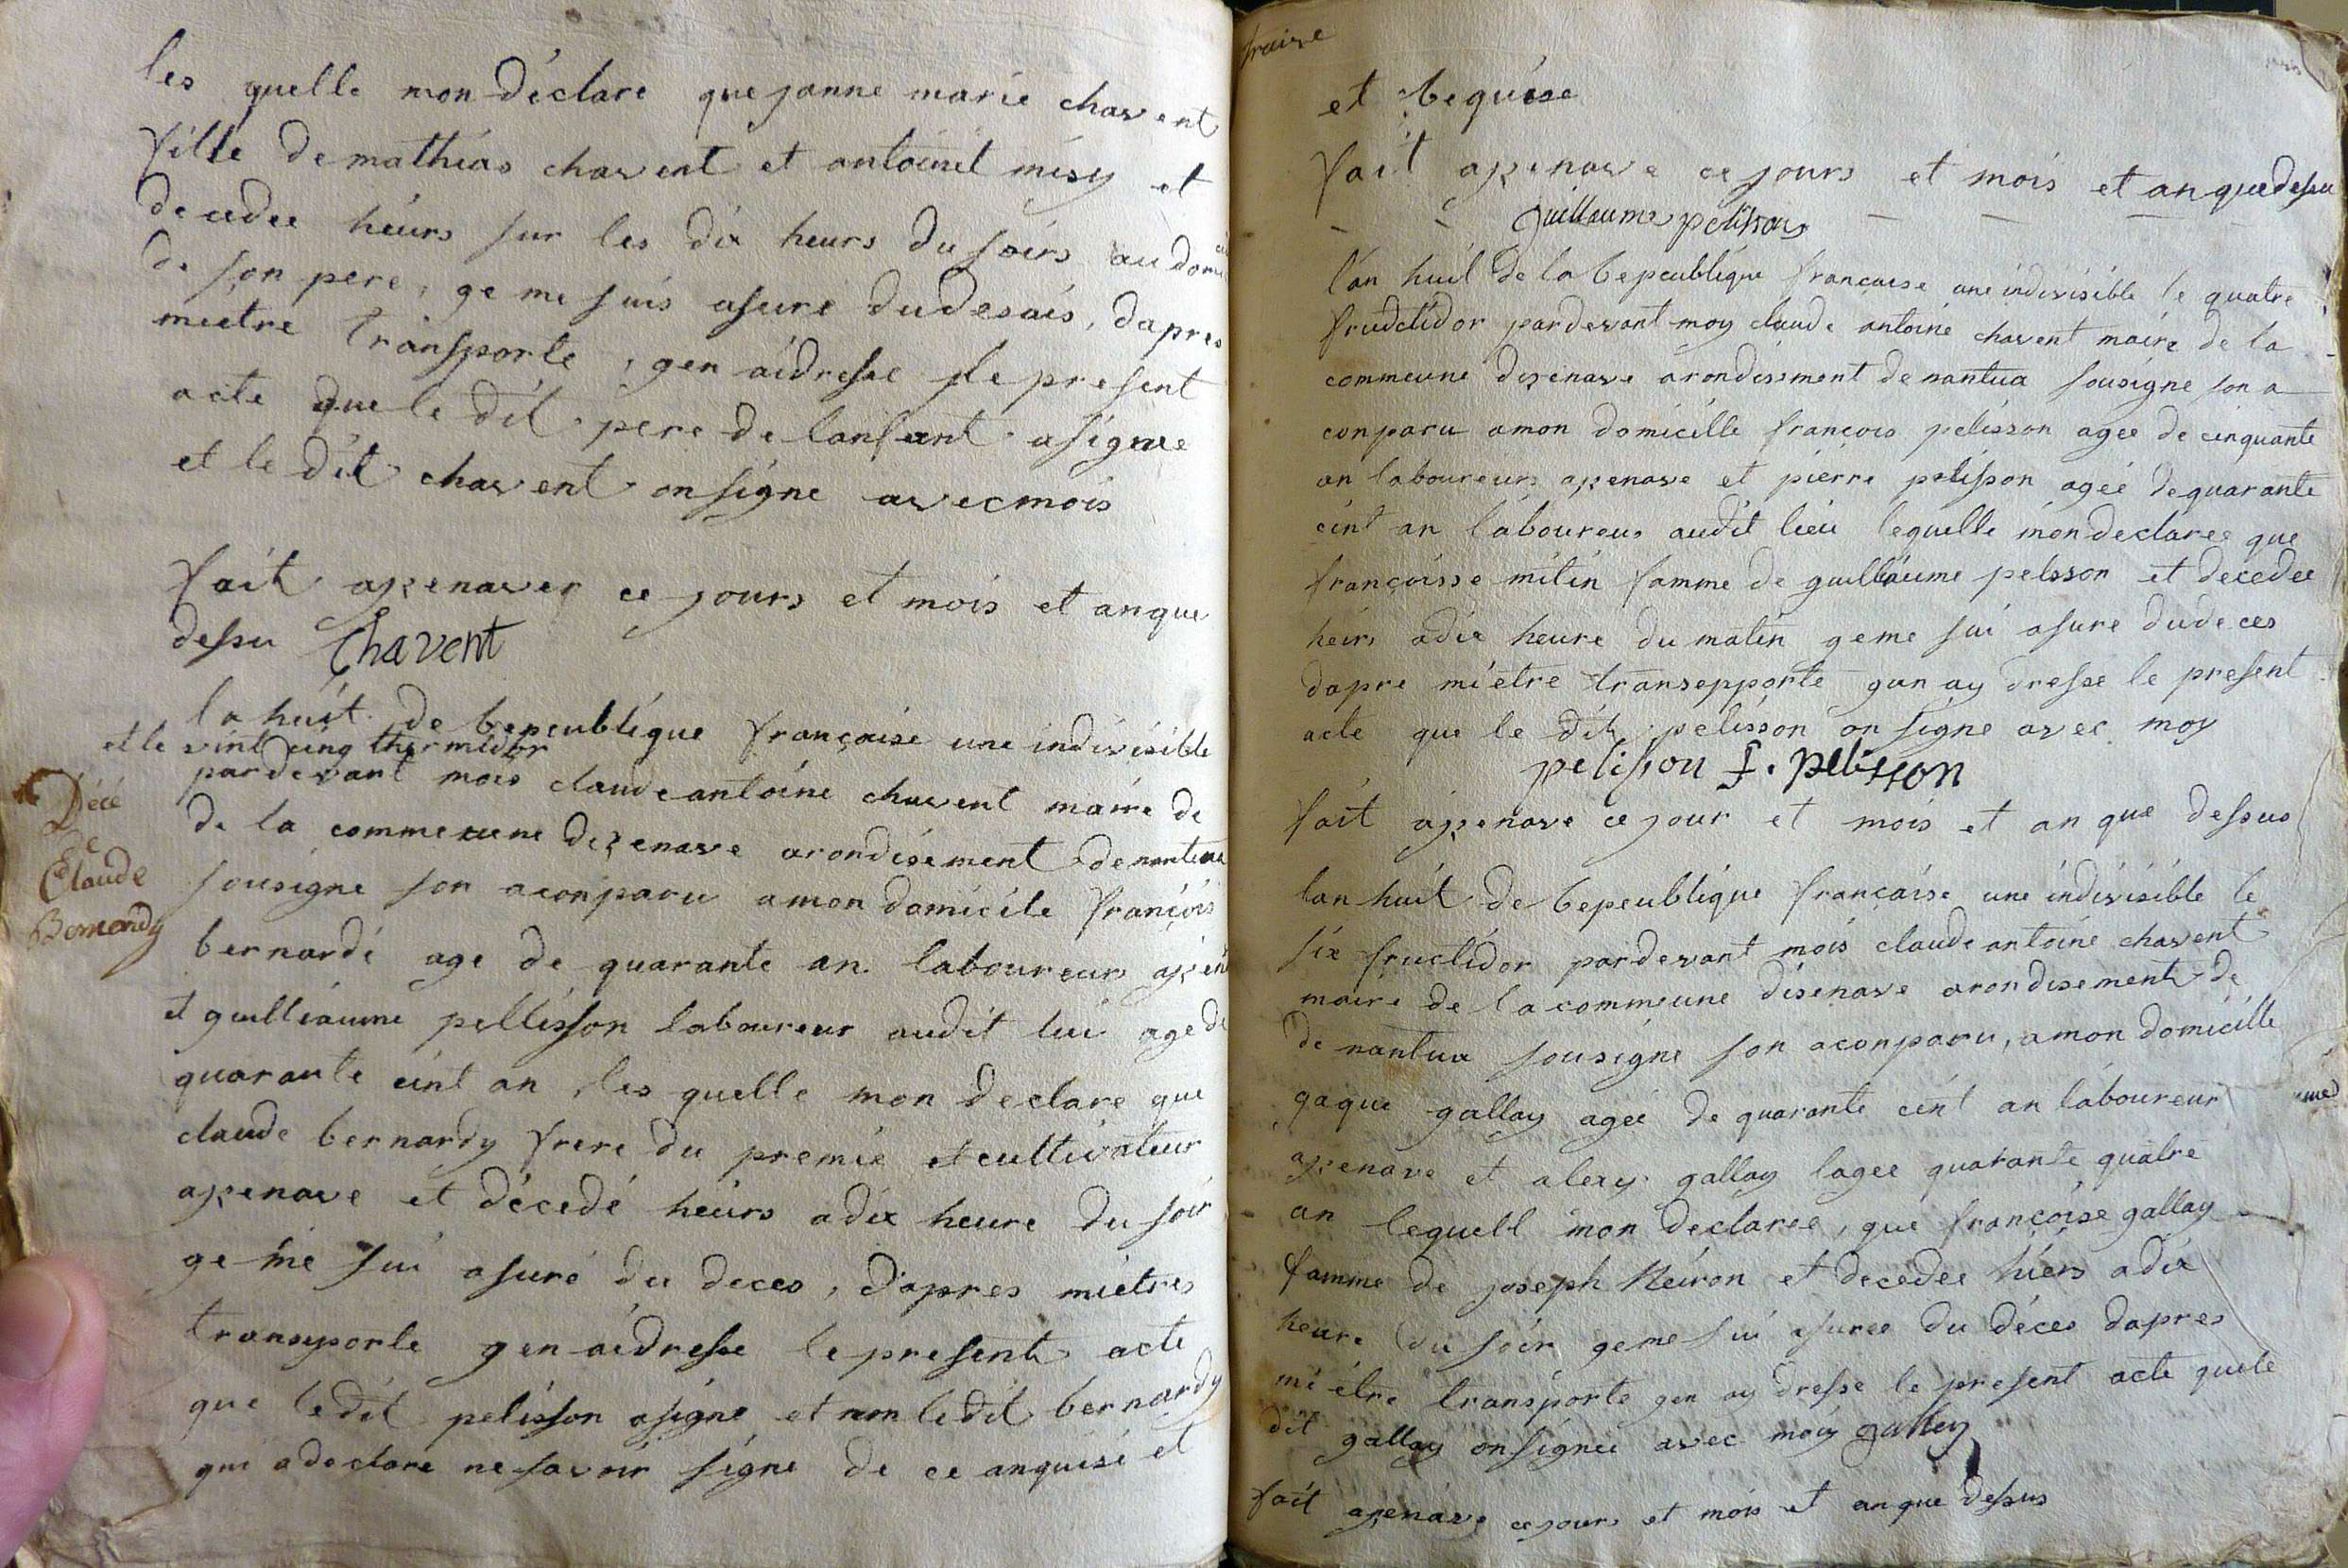 les quelle mon déclare que janne marie chavent
fille de mathias chavent et antoinet misy et
decedee heurs sur les dix heurs du soirs au domi
de son pere, ge me suis asure dudesais, dapres
mietre transporte, gen aidresse le present
acte que le dit pere de lanfant asigne
et le dit chavent on signe avec mois
fait azenaver ce jours et mois et anque
dessu Chavent
la huit de bepeublique française une indivisible
et le vint cinq thermidor
pardevant mois claude antoine chavent maire de
Décé
de
Claude
Bernardy
de la commeune dezenave arondisement de nantua
sousigne son aconparu amon domicile françois
bernardi age de quarante an laboureurs azen
et guilliaume pellisson laboureur audit lui age de
quarante cint an, les quelle mon declare que
claude bernardy frere du premie et cultivateur
azenave et décedé heurs adix heure du soir
ge me sui asuré du deces, dapres mietres
transporte gen aidresse le present acte
que ledit pelisson asigne et non ledit bernardy
qui a declare ne savoir signe de ce anquise et
fraise
et bequise
fait azenave ce jours et mois et anquedessu
guillaume pelisson
lan huit de la bepeublique francaise une indivisible le quatre
fructidor pardevant moy claude antoine chavent maire de la
commeune dezenave arondisement de nantua sousigne son a
conparu amon domicille françois pelisson agee de cinquante
an laboureurs azenave et pierre pelisson ageé de quarante
cint an laboureus audit lieu lequelle mon declaree que
françoisse mitin famme de guilliaume pelsson et decedee
heirs adix heure du matin ge me sui asure dudeces
dapre mietre transepporte gan ay dresse le present
acte que le dit pelisson on signe avec moy
pelisson f. pelisson
fait azenave ce jour et mois et an que dessus
lan huit de bepeublique francaise une indivisible le
six fructidor pardevant mois claude antoine chavent
maire de la commeune disenave arondisement de
de nantua sousigne son aconparu, amon domicille
gaque gallay ageé de quarante cint an laboureur
azenave et alexy gallay lagee quarante quatre
an lequell mon declaree, que françoise gallay
famme de joseph Neiron et decedee hiers adix
heure du soir ge me sui asuree du déces dapres
mi étre transporte gen ay dresse le present acte quele
dit gallay on signee avec moy gallay
fait azenave ce jours et mois et an que dessus